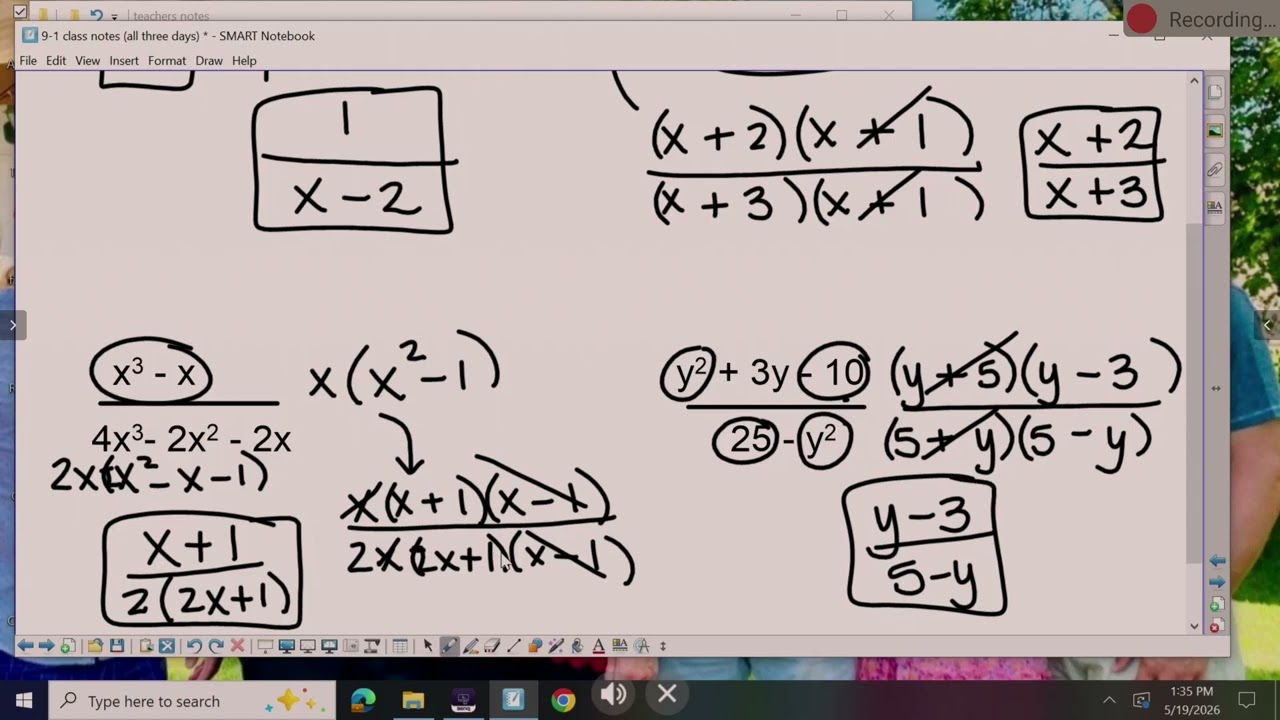 teachers notes
Recording...
9-1 class notes (all three days) * - SMART Notebook
File Edit View Insert Format Draw Help
1
x - 2
(x + 2)(x + 1)
(x + 3)(x + 1)
x + 2
x + 3
x³ - x
4x³- 2x² - 2x
2x(x² - x - 1)
x(x² - 1)
x(x + 1)(x - 1)
2x(2x+1)(x - 1)
x + 1
2(2x+1)
y² + 3y - 10
25 - y²
(y + 5)(y - 3)
(5 + y)(5 - y)
y - 3
5 - y
Type here to search
1:35 PM
5/19/2026